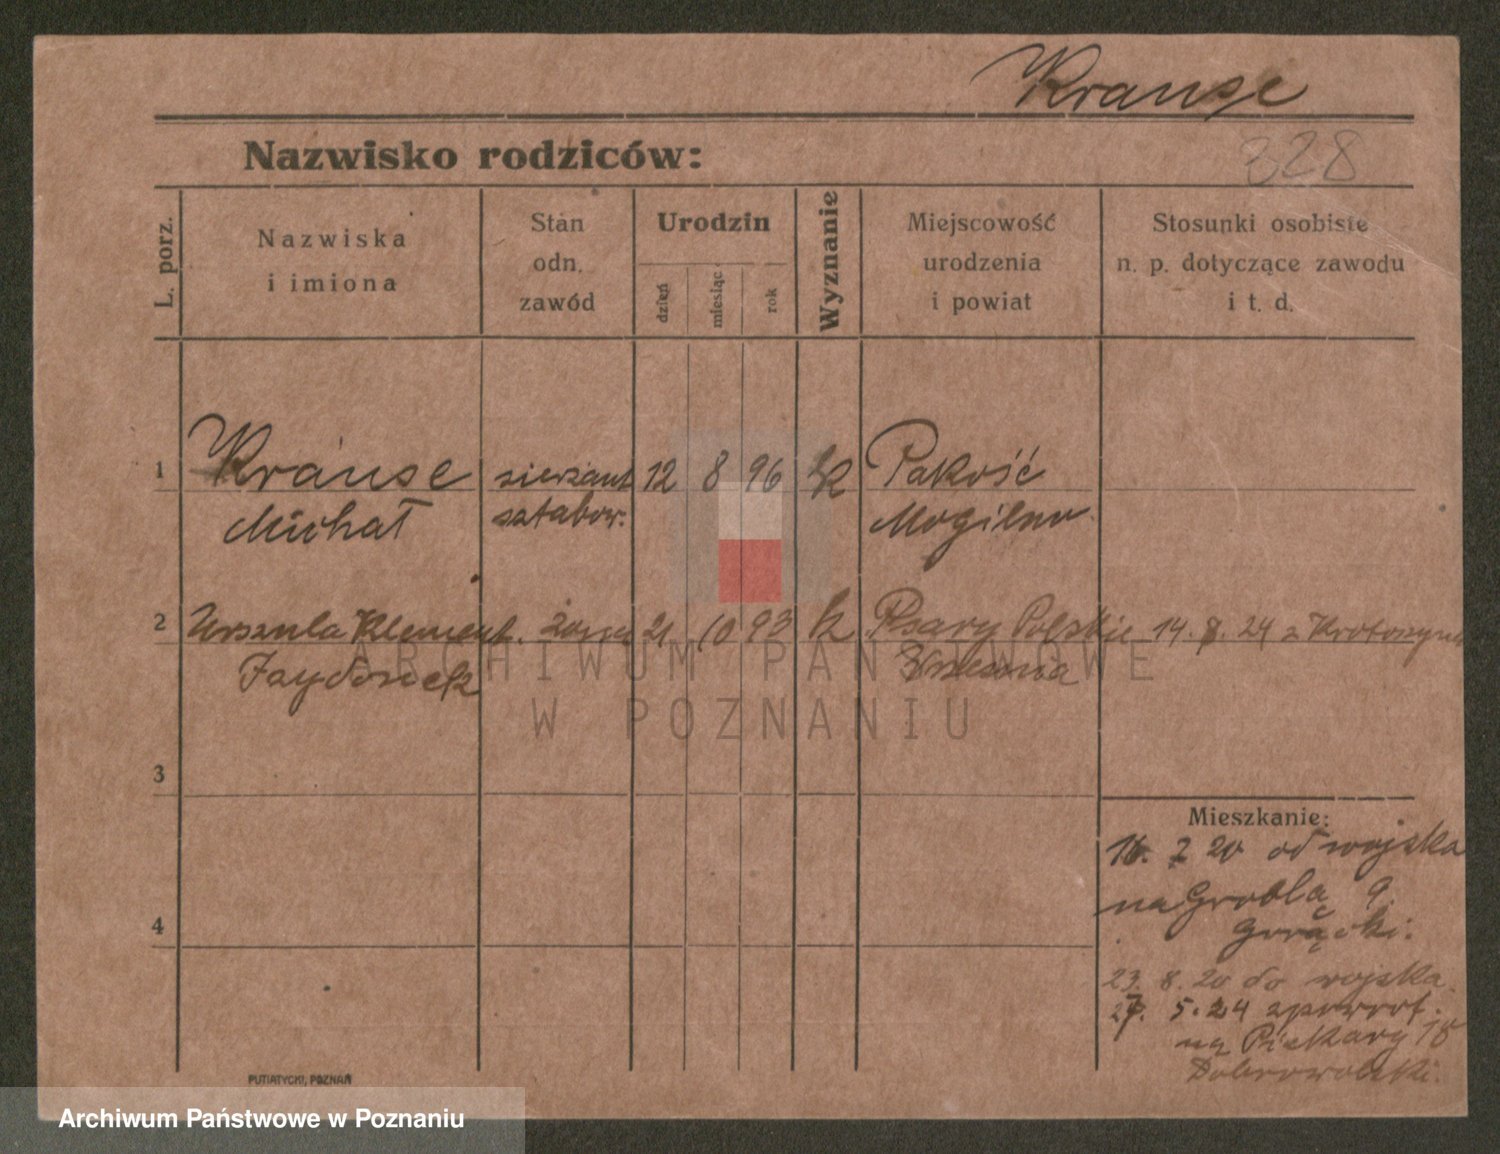 Krause
Nazwisko rodziców:
328
L. porz.
Nazwiska
i imiona
Stan
odn.
zawód
Urodzin
dzień
miesiąc
rok
Wyznanie
Miejscowość
urodzenia
i powiat
Stosunki osobiste
n. p. dotyczące zawodu
i t. d.
1 Krause sierżant 12 8 96 Pakość
Michał sztabow. Mogilno
2 Urszula Klement. żona 21 10 93 k Psary Polskie 14. 24 z Krotoszyna
Września
3
4
Mieszkanie:
16. 7 20 od wojska
na Grobla 9.
Gorącki.
23. 8. 20 do wojska.
27. 5. 24 zpowrot.
na Piekary 18
Dobrowolski.
PUTIATYCKI, POZNAŃ
ARCHIWUM PAŃSTWOWE
W POZNANIU
Archiwum Państwowe w Poznaniu